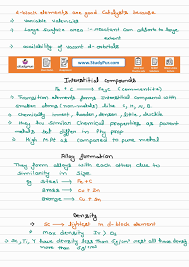 d-block elements are good Catalysts because
• Variable valencies
• Large Surface area :- reactant can adsorb to large extent
• availability of vacant d-orbitals
StudyPur
www.StudyPur.com
Interstitial Compounds
Fe + C → Fe3C (cementite)
• Transition elements forms Interstitial compound with smaller atoms (non-metals) like C, H, N, B.
• Chemically inert, harder, denser, brittle, ductile
• They r similar Chemical properties as parent metals but differ in Phy prop
• High MP+ as compared to pure metal
Alloy formation
They form alloys with each other due to Similarity in Size.
Eg Steel → Fe + C
Brass → Cu + Zn
Bronze → Cu + Sn
Density
• Sc → lightest in d-block element
• Max density :
• Sc, Ti, Y have density less than 5g/cm3 rest all have density more than 5g/cm3